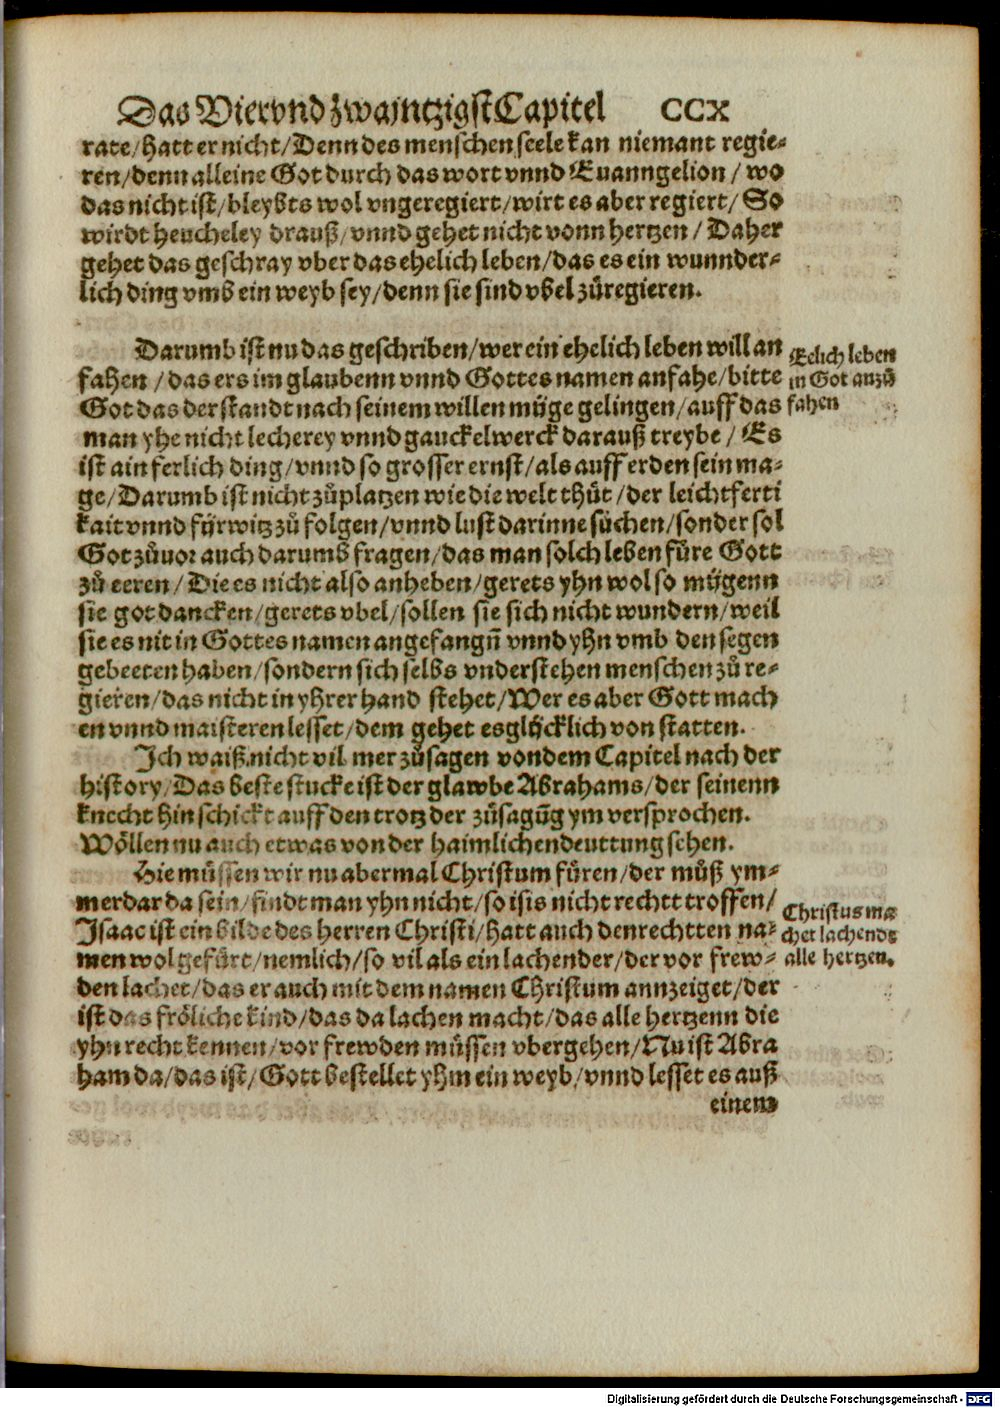 Das Viervnd zwajntzigst Capitel CCX
rate/hatt er nicht/Denn des menschen seele kan niemant regie-
ren/denn alleine Got durch das wort vnnd Euanngelion / wo
das nicht ist/bleybts wol vngeregiert/wirt es aber regiert/ So
wirdt heucheley drauß/vnnd gehet nicht vonn hertzen / Daher
gehet das geschray vber das ehelich leben/das es ein wunnder-
lich ding vmb ein weyb sey/denn sie sind vbel zůregieren.
Darumb ist nu das geschriben/wer ein ehelich leben will an
fahen / das ers im glaubenn vnnd Gottes namen anfahe/bitte
Got das der standt nach seinem willen müge gelingen/auff das
man yhe nicht lecherey vnnd gauckelwerck darauß treybe / Es
ist ain ferlich ding/vnnd so grosser ernst/als auff erden sein ma-
ge/Darumb ist nicht zůplatzen wie die welt thůt/der leichtferti
kait vnnd fürwitz zů folgen/vnnd lust darinne sůchen/sonder sol
Got zůuor auch darumb fragen/das man solch leben füre Gott
zů eeren/Die es nicht also anheben/gerets yhn wol so mügenn
sie got dancken/gerets vbel/sollen sie sich nicht wundern/weil
sie es nit in Gottes namen angefangñ vnnd yhn vmb den segen
gebeeten haben/sondern sich selbs vnderstehen menschen zů re-
gieren/das nicht in yhrer hand stehet/Wer es aber Gott mach
en vnnd maisteren lesset/dem gehet es glücklich von statten.
Eelich leben
in Got anzů
fahen
Ich waiß nicht vil mer zůsagen von dem Capitel nach der
history/Das beste stucke ist der glawbe Abrahams/der seinenn
knecht hin schickt auff den trotz der zůsagūg ym versprochen.
Wöllen nu auch etwas von der haimlichen deuttung sehen.
Hie müssen wir nu abermal Christum füren/der můß ym-
merdar da sein/findt man yhn nicht/so isis nicht rechtt troffen/
Isaac ist ein bilde des herren Christi/hatt auch den rechtten na-
men wol gefürt/nemlich/so vil als ein lachender/der vor frew-
den lachet/das er auch mit dem namen Christum annzeiget/der
ist das fröliche kind/das da lachen macht/das alle hertzenn die
yhn recht kennen/vor frewden müssen vbergehen/Nu ist Abra
ham da/das ist/Gott bestellet yhm ein weyb/vnnd lesset es auß
einem
Christus ma
chet lachends
alle hertzen.
Digitalisierung gefördert durch die Deutsche Forschungsgemeinschaft - DFG